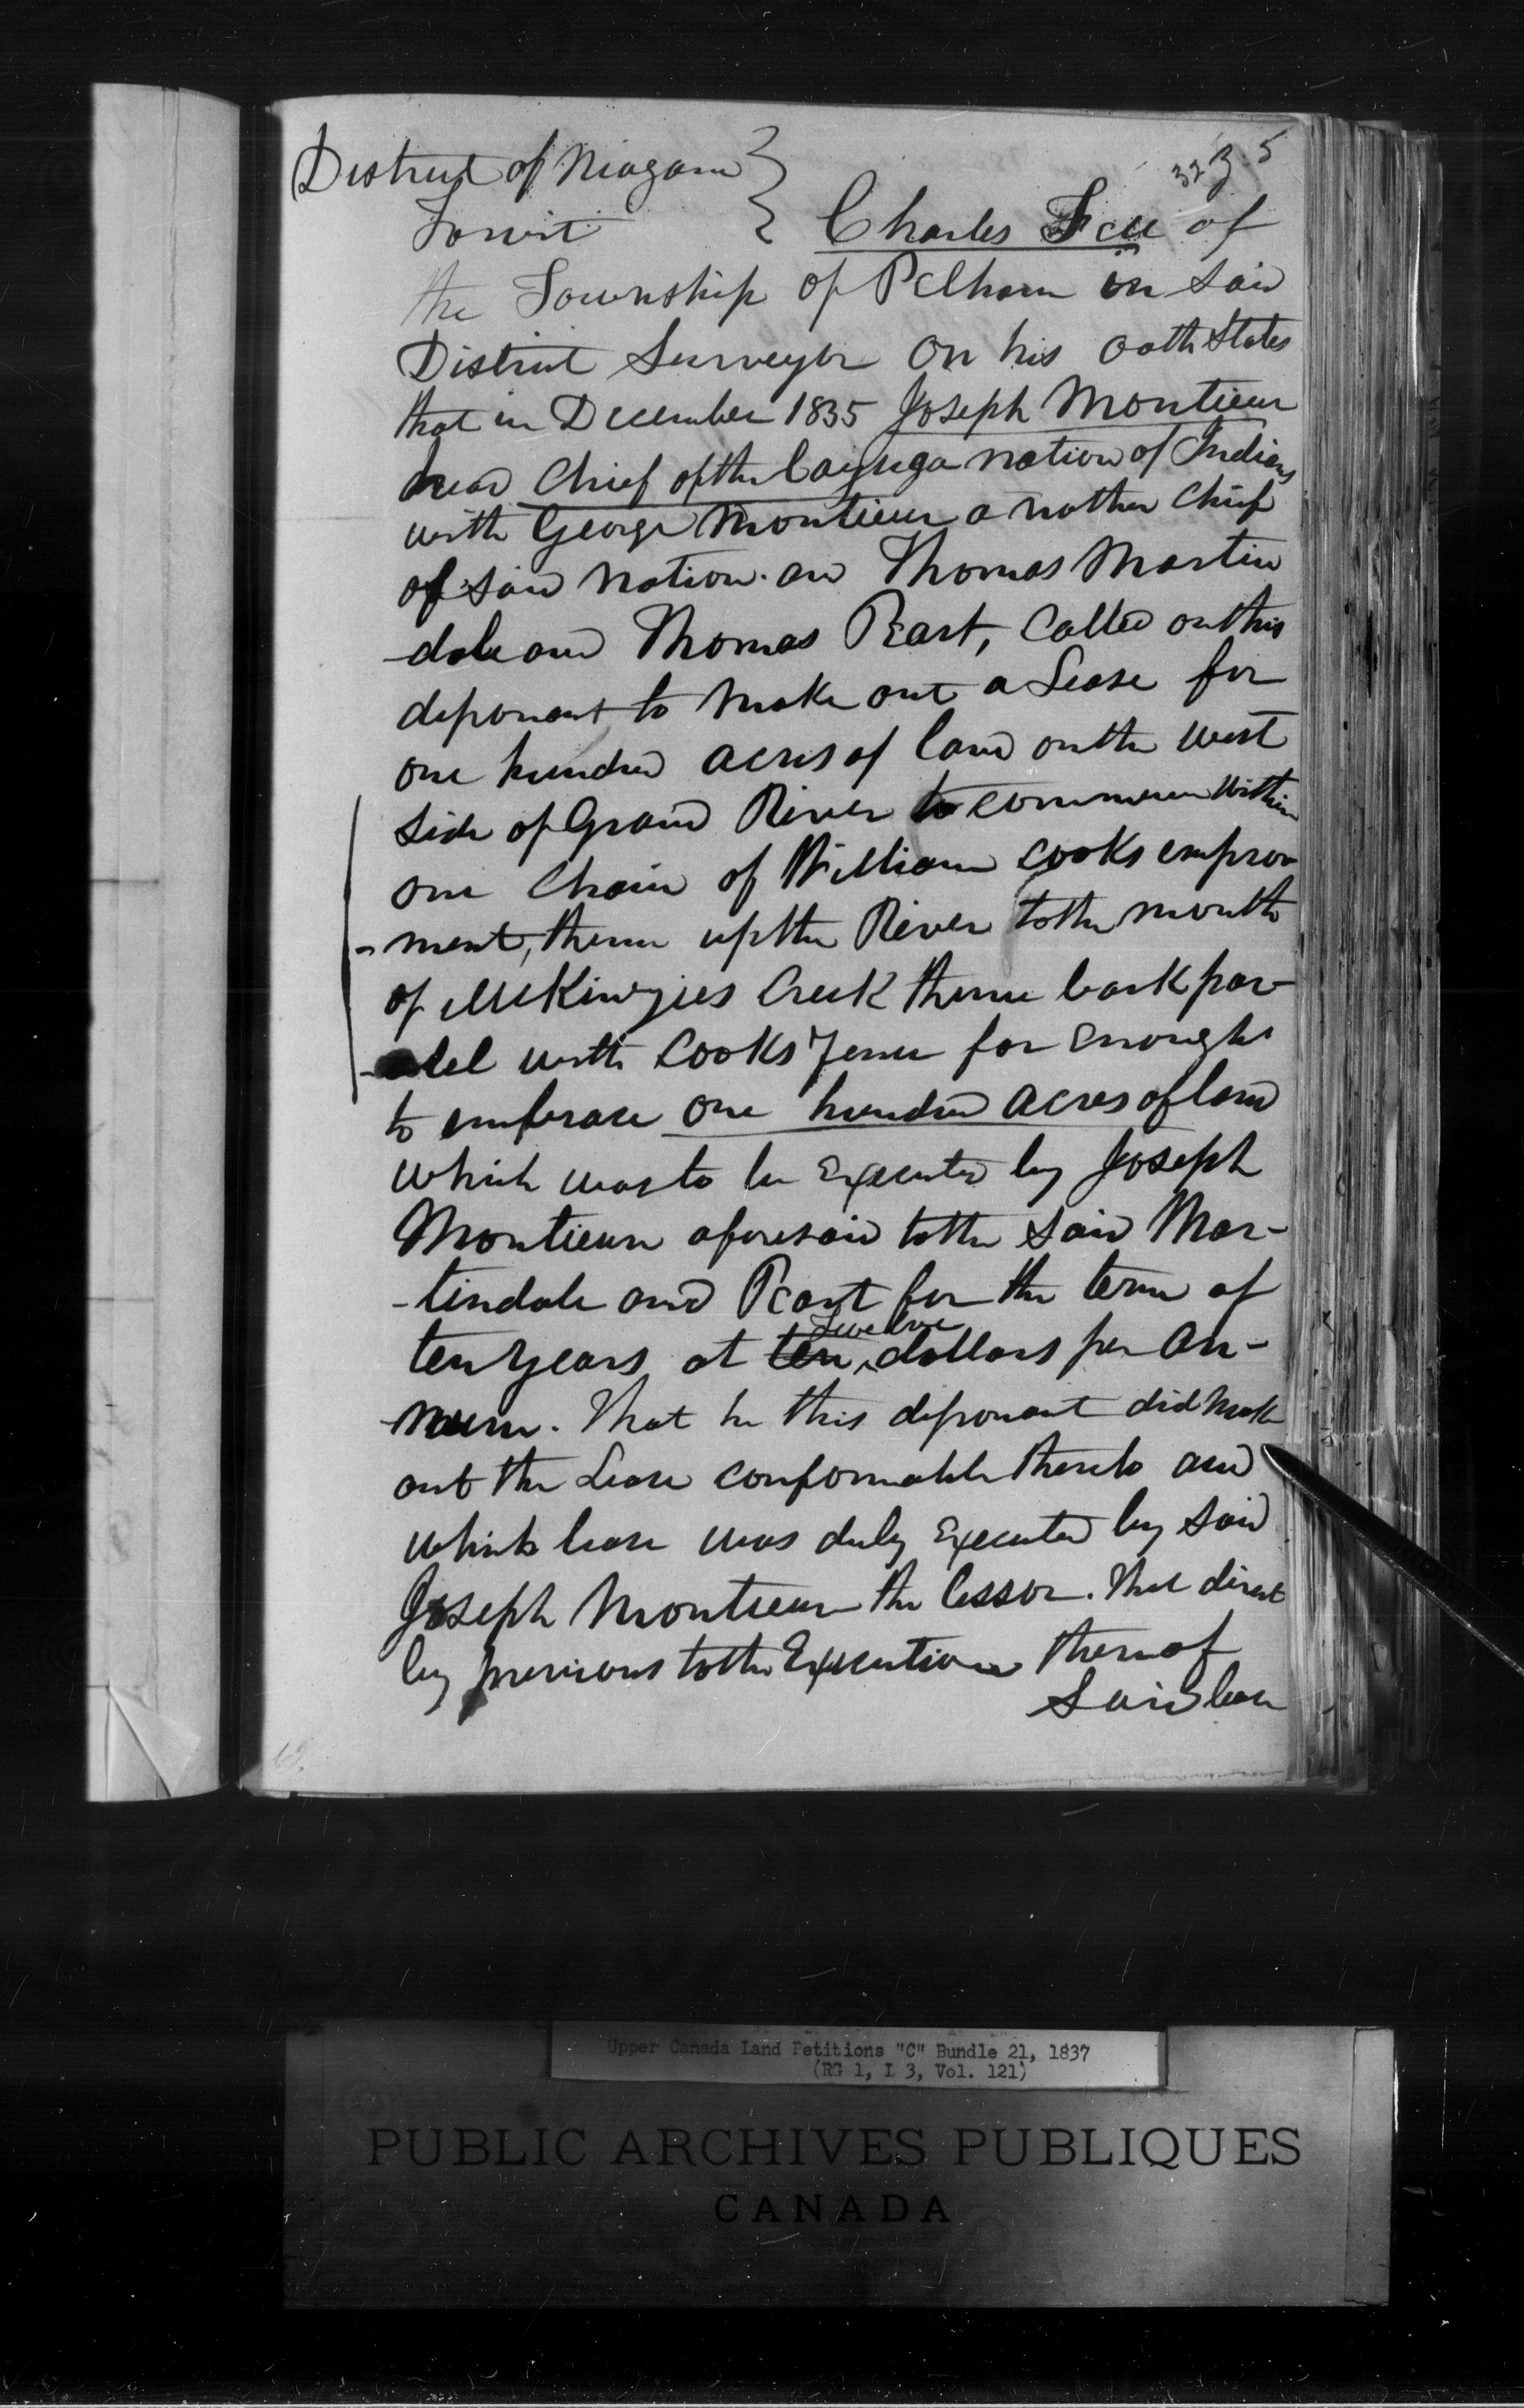 District of Niagara }
32B 5
Towit } Charles Fell of
the Township of Pelham in said
District Surveyor on his oath States
that in December 1835 Joseph Montieur
head Chief of the Cayuga nation of Indians
with George Montieur a nother Chief
of said nation. and Thomas Martin
-dale and Thomas Peart, Called on this
deponant to make out a Lease for
one hundred acres of land on the west
side of Grand River to commence within
one Chain of William Cooks improv
-ment, thence up the River to the mouth
of McKinzies Creek thence back par-
-alel with Cooks fence far enough
to embrace one hundred acres of land
which was to be Executed by Joseph
Montieur aforesaid to the said Mar-
-tindale and Peart for the term of
Twelve
ten years at ten dollars per An-
-num. That he this deponant did make
out the Lease conformable thereto and
which lease was duly Executed by said
Joseph Montieur the lessor. That direct
ly previous to the Execution thereof
Said lease
Upper Canada Land Petitions "C" Bundle 21, 1837
(RG 1, L 3, Vol. 121)
PUBLIC ARCHIVES PUBLIQUES
CANADA